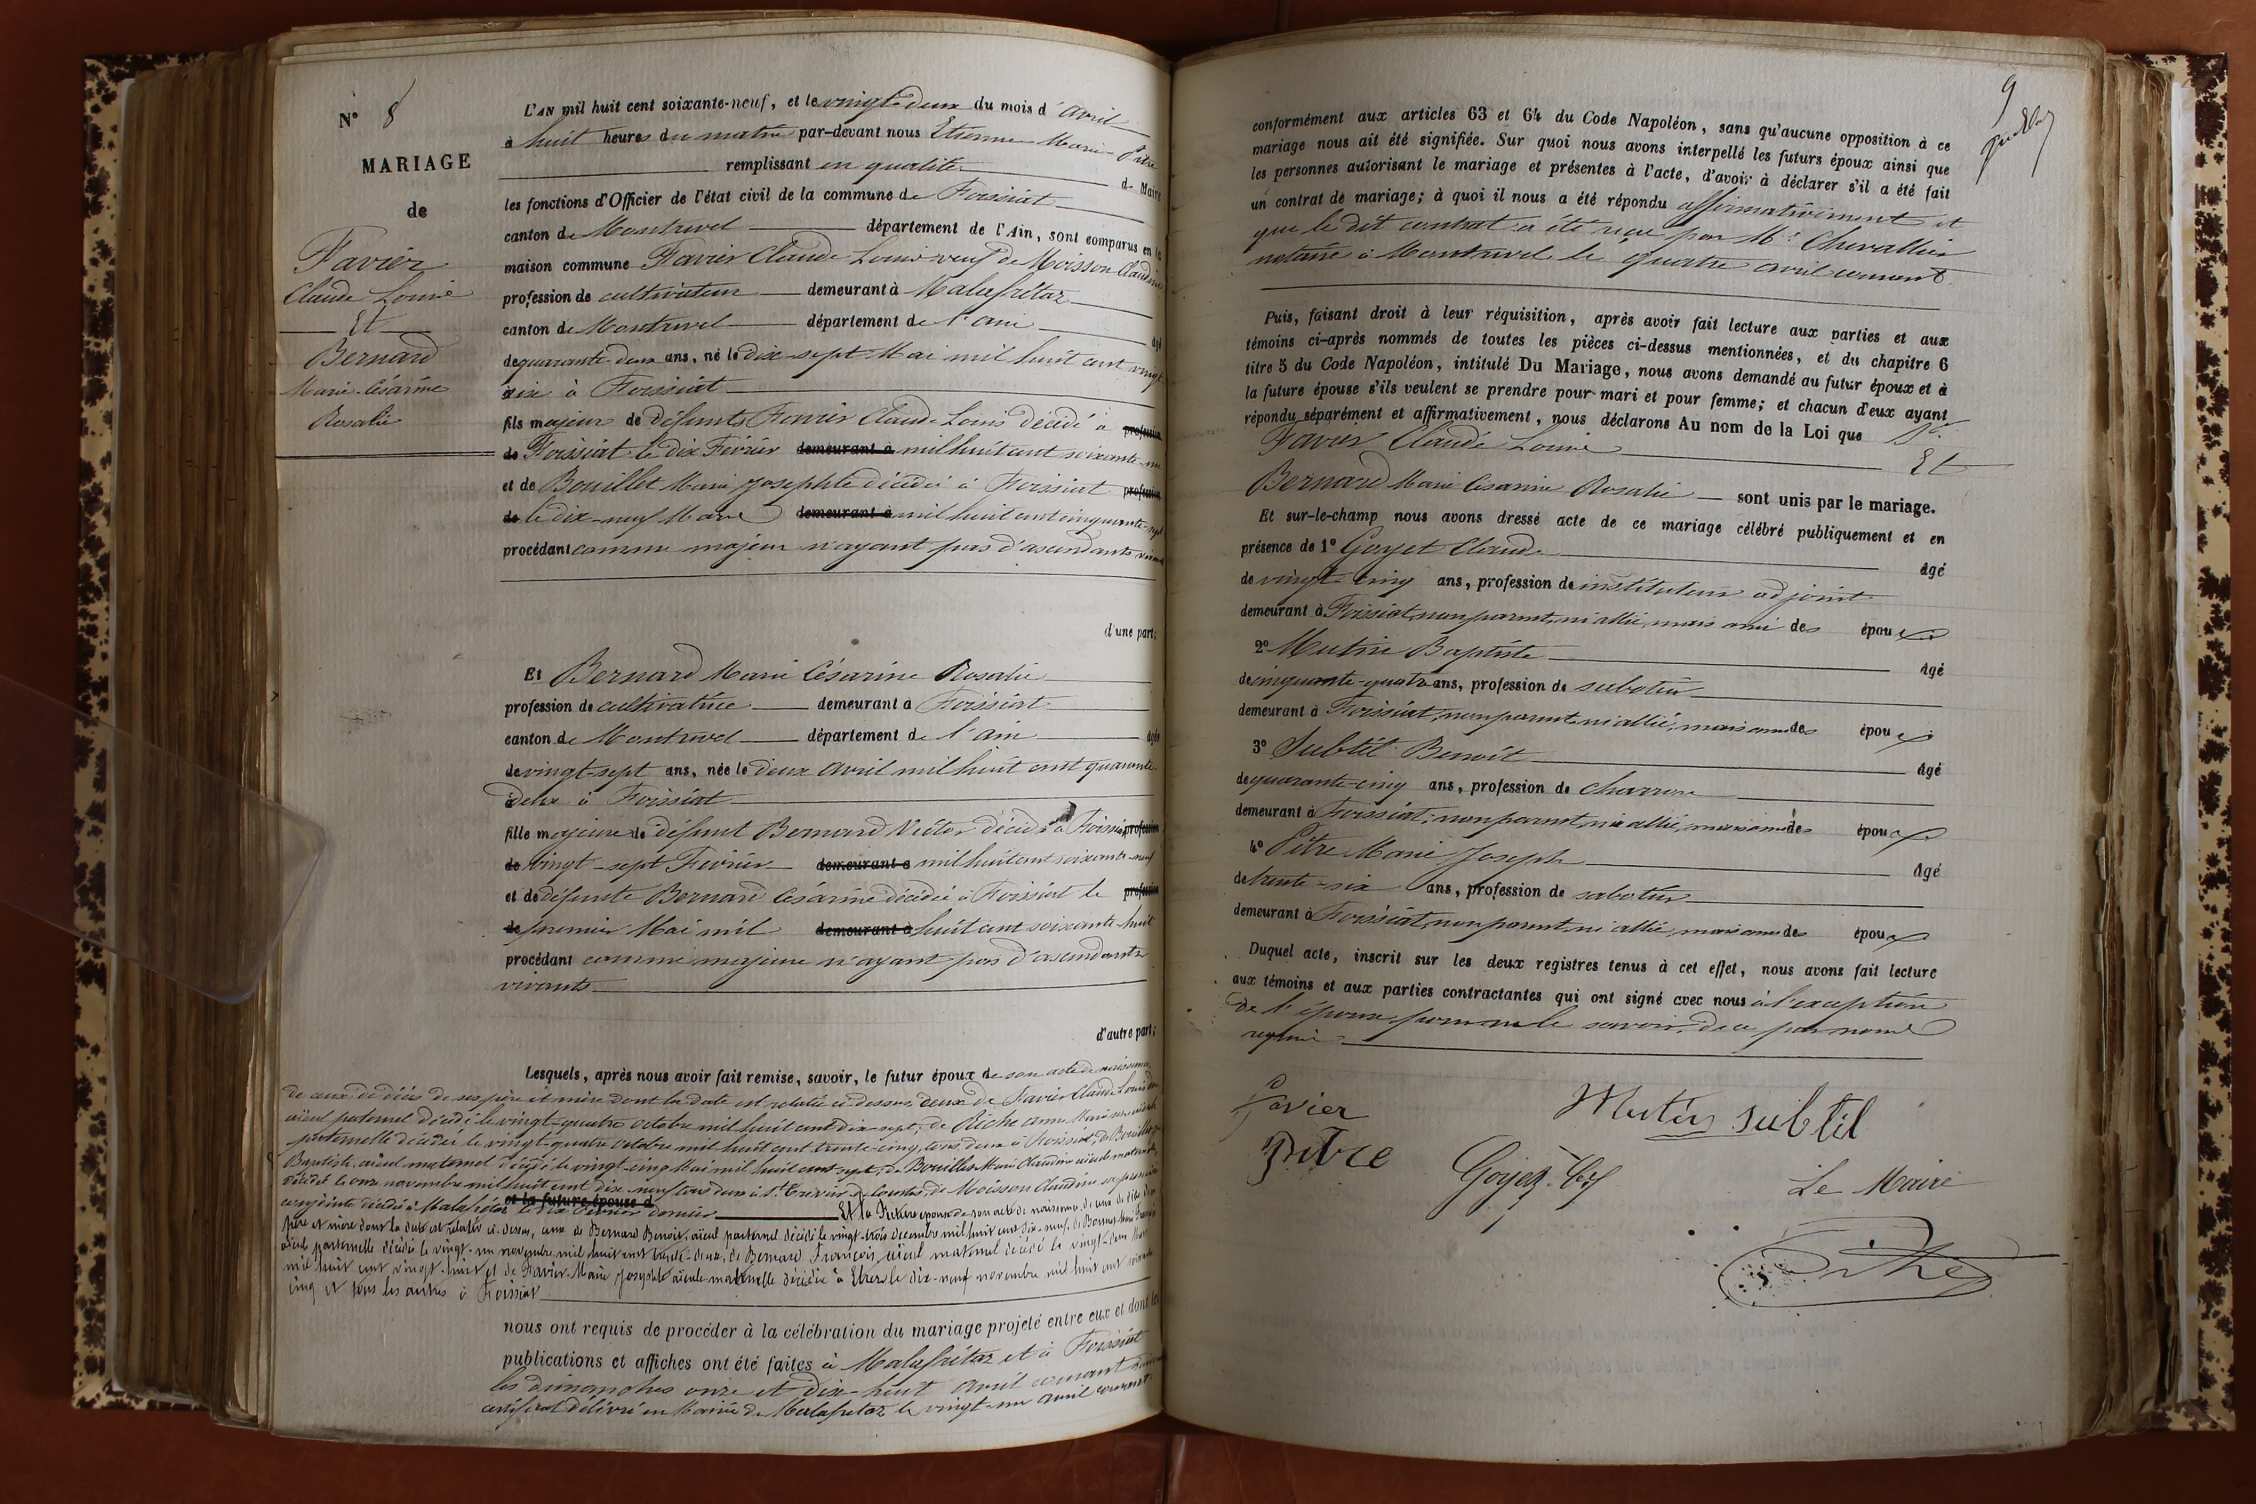 N° 8
MARIAGE
de
Favier
Claude Louis
Et
Bernard
Marie Césarine
Rosalie
L'AN mil huit cent soixante-neuf, et le vingt-deux du mois d'avril
à huit heures du matin par-devant nous Etienne Marie Pitre
remplissant en qualité de Maire
les fonctions d'Officier de l'état civil de la commune de Foissiat
canton de Montrevel département de l'Ain, sont comparus en la
maison commune Favier Claude Louis veuf de Moisson Claudine
profession de cultivateur demeurant à Malafrétaz
canton de Montrevel département de l'ain âgé
de quarante-deux ans, né le dix-sept Mai mil huit cent vingt
six à Foissiat
fils majeur de défunts Favier Claude Louis décédé à profession
de Foissiat le dix Février demeurant à mil huit cent soixante-un
et de Bouillet Marie Josephte décédée à Foissiat profession
de le dix-neuf Mars demeurant à mil huit cent cinquante-sept
procédant comme majeur n'ayant pas d'ascendants vivants
d'une part;
Et Bernard Marie Césarine Rosalie
profession de cultivatrice demeurant à Foissiat
canton de Montrevel département de l'ain âgée
de vingt-sept ans, née le deux avril mil huit cent quarante
deux à Foissiat
fille majeure de défunt Bernard Victor décédé à Foissiat profession
de vingt-sept Février demeurant à mil huit cent soixante-neuf
et de défunte Bernard Césarine décédée à Foissiat le profession
de premier Mai mil demeurant à huit cent soixante-huit
procédant comme majeure n'ayant pas d'ascendants
vivants
d'autre part;
Lesquels, après nous avoir fait remise, savoir, le futur époux de son acte de naissance
de ceux de décès de ses père et mère dont la date est relatée ci-dessus, ceux de Favier Claude Louis son
aïeul paternel décédé le vingt-quatre octobre mil huit cent dix-sept, de Piche anne Marie son aïeule
paternelle décédée le vingt-quatre octobre mil huit cent trente-cinq, tous deux à Foissiat, de Bouillet
Baptiste aïeul maternel décédé le vingt-cinq Mai mil huit cent sept, de Bouillet Marie Claudine aïeule maternelle
décédée le onze novembre mil huit cent dix-neuf tous deux à St Trivier de Courtes, de Moisson Claudine sa première
conjointe décédée à Malafrétaz le dix Février dernier et la future épouse d Et la Future épouse de son acte de naissance, de ceux de décès de ses
père et mère dont la date est relatée ci-dessus, ceux de Bernard Benoit, aïeul paternel décédé le vingt-trois décembre mil huit cent dix-neuf, de
aïeule paternelle décédée le vingt-un novembre mil huit cent trente-deux, de Bernard François, aïeul maternel décédé le vingt-deux
mil huit cent vingt-huit et de Favier Marie Josephte aïeule maternelle décédée à Etrez le dix-neuf novembre mil huit cent
cinq et tous les autres à Foissiat
nous ont requis de procéder à la célébration du mariage projeté entre eux et dont les
publications et affiches ont été faites à Malafrétaz et à Foissiat
les dimanches onze et dix-huit avril courant
certificat délivré en Mairie de Malafretaz le vingt-un avril courant
9
conformément aux articles 63 et 64 du Code Napoléon, sans qu'aucune opposition à ce
mariage nous ait été signifiée. Sur quoi nous avons interpellé les futurs époux ainsi que
les personnes autorisant le mariage et présentes à l'acte, d'avoir à déclarer s'il a été fait
un contrat de mariage; à quoi il nous a été répondu affirmativement et
que le dit contrat a été reçu par Me Chevallier
notaire à Montrevel le quatre avril courant.
Puis, faisant droit à leur réquisition, après avoir fait lecture aux parties et aux
témoins ci-après nommés de toutes les pièces ci-dessus mentionnées, et du chapitre 6
titre 5 du Code Napoléon, intitulé Du Mariage, nous avons demandé au futur époux et à
la future épouse s'ils veulent se prendre pour mari et pour femme; et chacun d'eux ayant
répondu séparément et affirmativement, nous déclarons Au nom de la Loi que
Favier Claude Louis Et
Bernard Marie Césarine Rosalie sont unis par le mariage.
Et sur-le-champ nous avons dressé acte de ce mariage célébré publiquement et en
présence de 1° Goyet Claude âgé
de vingt-cinq ans, profession de instituteur adjoint
demeurant à Foissiat, non parent, ni allié, mais ami des époux
2° Mutin Baptiste âgé
de cinquante-quatre ans, profession de sabotier
demeurant à Foissiat, non parent, ni allié, mais ami des époux
3° Subtil Benoît âgé
de quarante-cinq ans, profession de charron
demeurant à Foissiat, non parent, ni allié, mais ami des époux
4° Pitre Marie Joseph âgé
de trente-six ans, profession de sabotier
demeurant à Foissiat, non parent, ni allié, mais ami des époux
Duquel acte, inscrit sur les deux registres tenus à cet effet, nous avons fait lecture
aux témoins et aux parties contractantes qui ont signé avec nous à l'exception
de l'épouse pour ne le savoir, de ce par nous
requise
Favier
Mutin subtil
Pitre
Goyet Cl.
Le Maire
Pitre